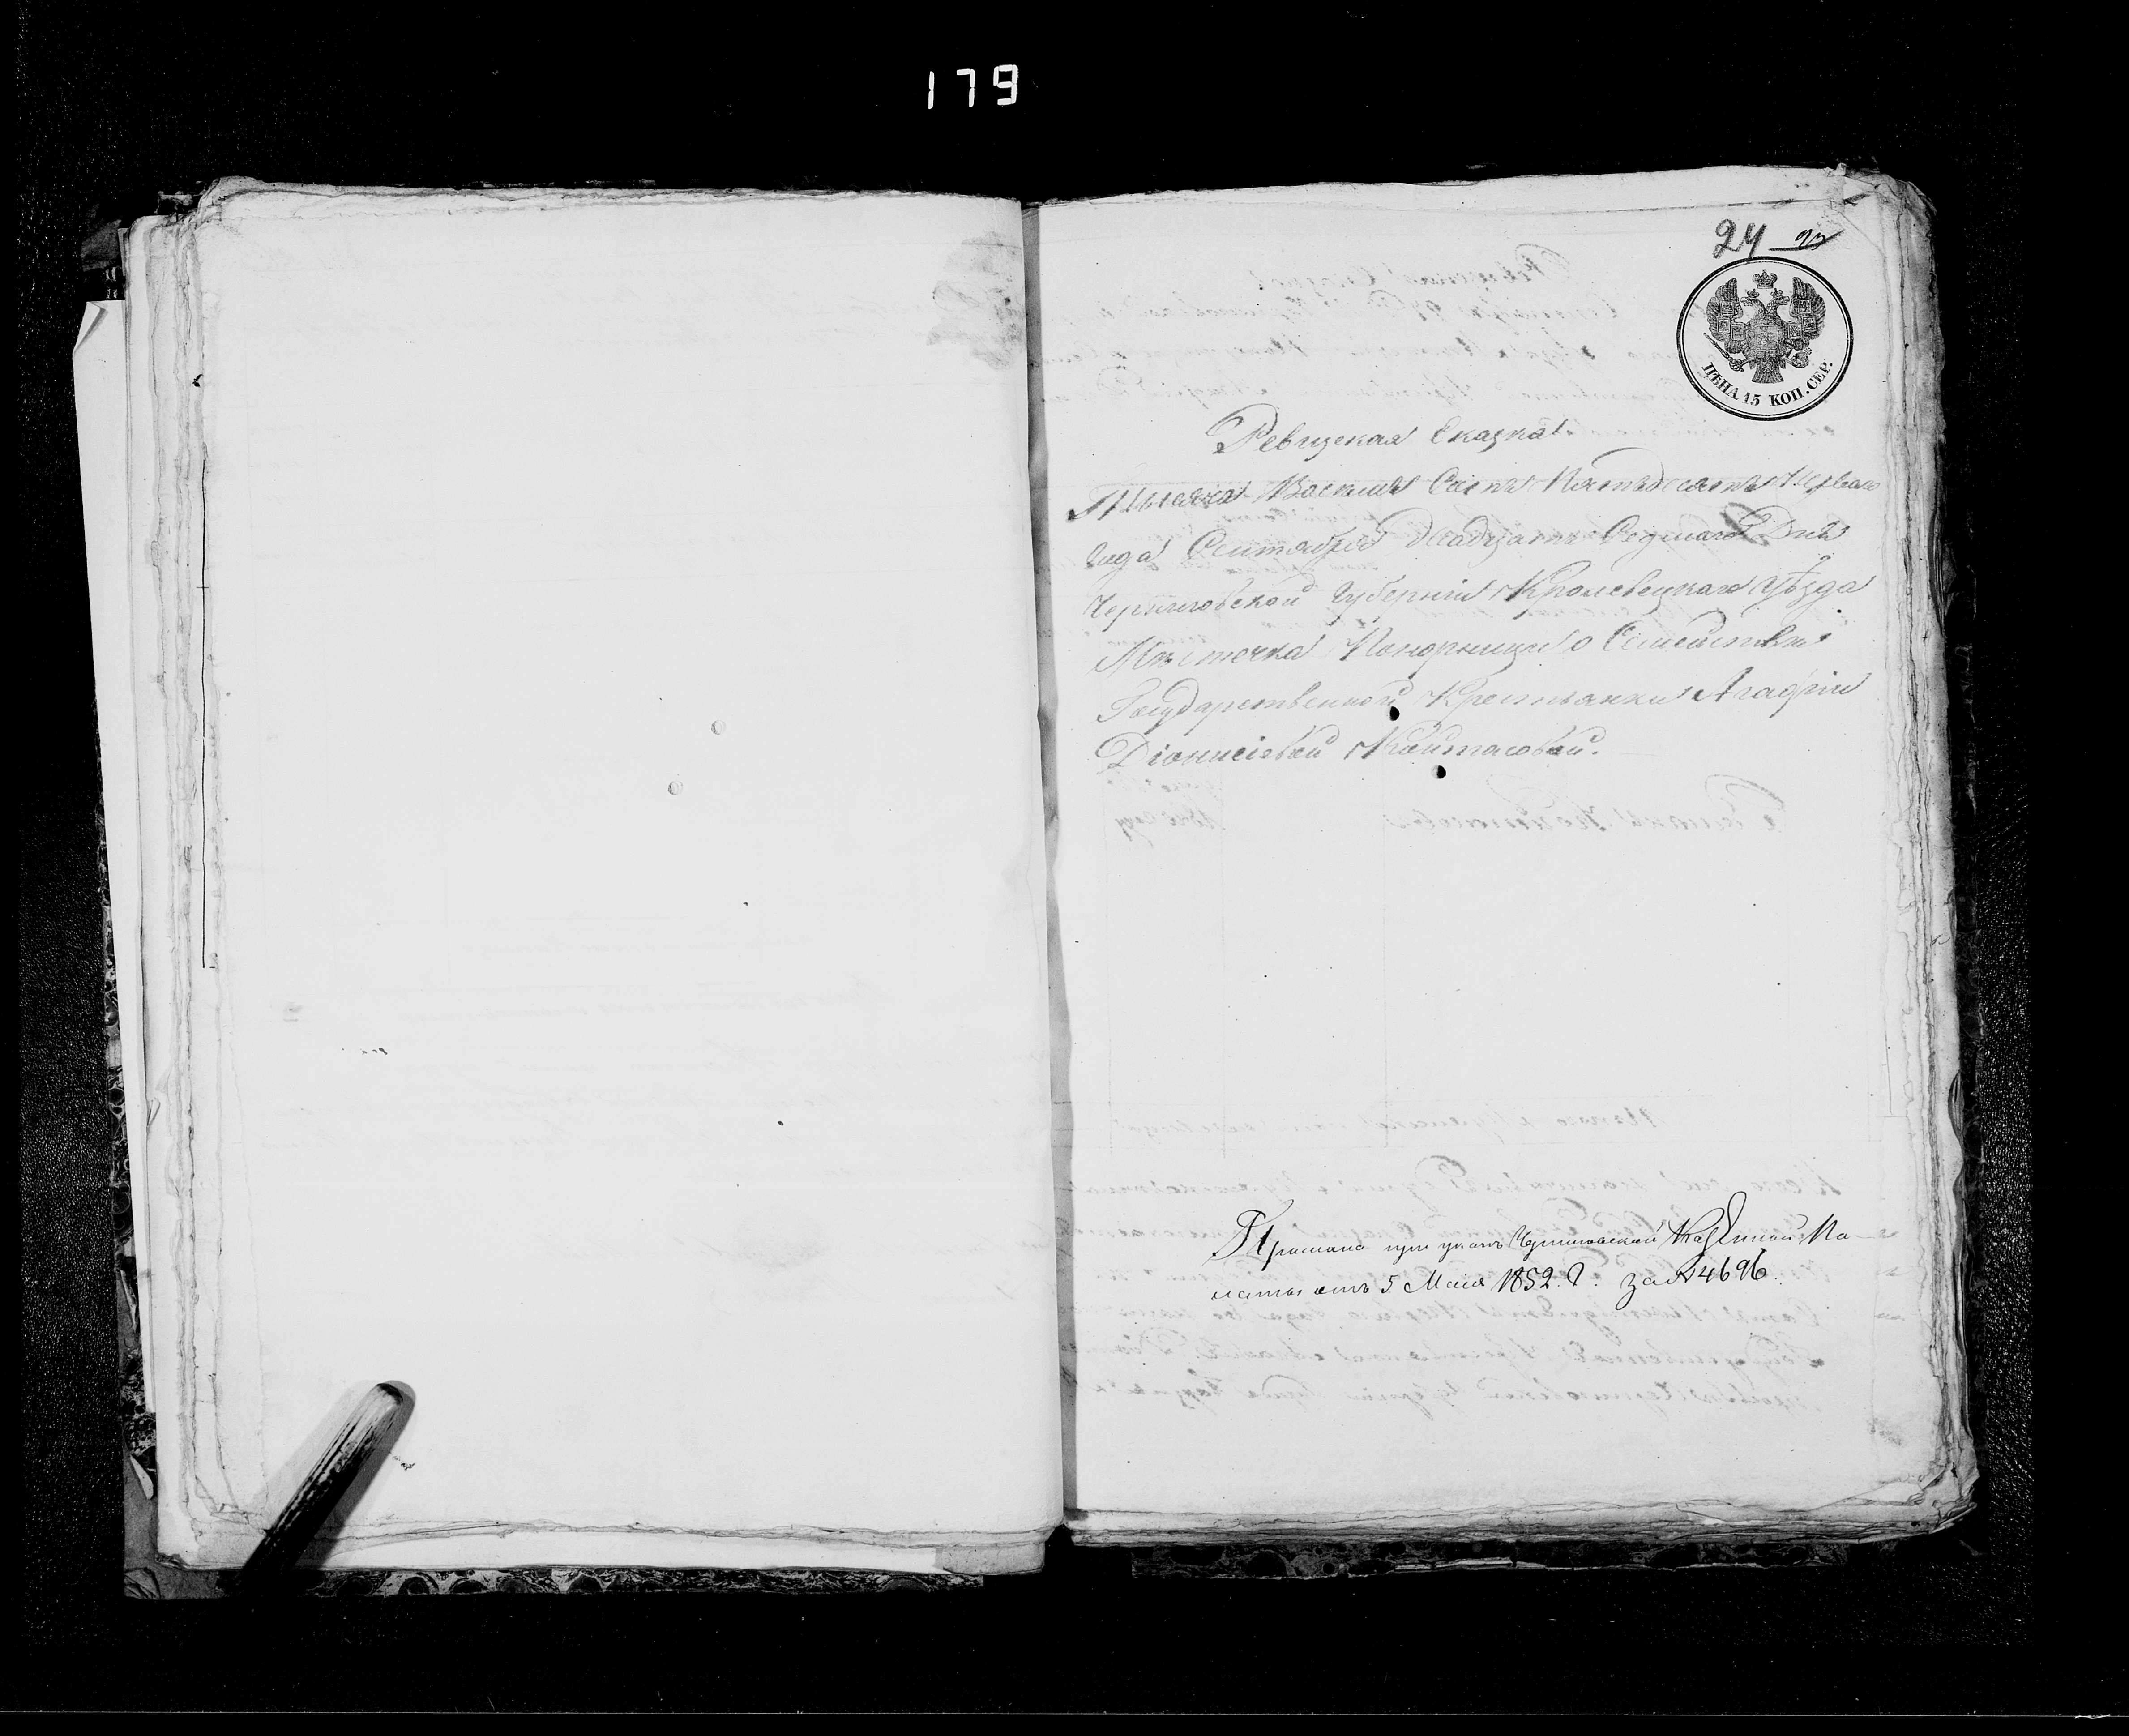 179
24
ЦѢНА 15 КОП. СЕР.
Ревизская Сказка
Тысяча Восемь Сотъ Пятьдесятъ Перваго
Года Сентября двадцать Седмаго Дня
Черниговской Губерніи Кролевецкаго Уѣзда
Мѣстечка Понорницы о Семействѣ
Государственной Крестьянки Агафіи
Діонисіевой Койтасовой.
Прислана при указѣ Черниговской Казенной Па-
латы отъ 5 Мая 1852. г. за № 4696.